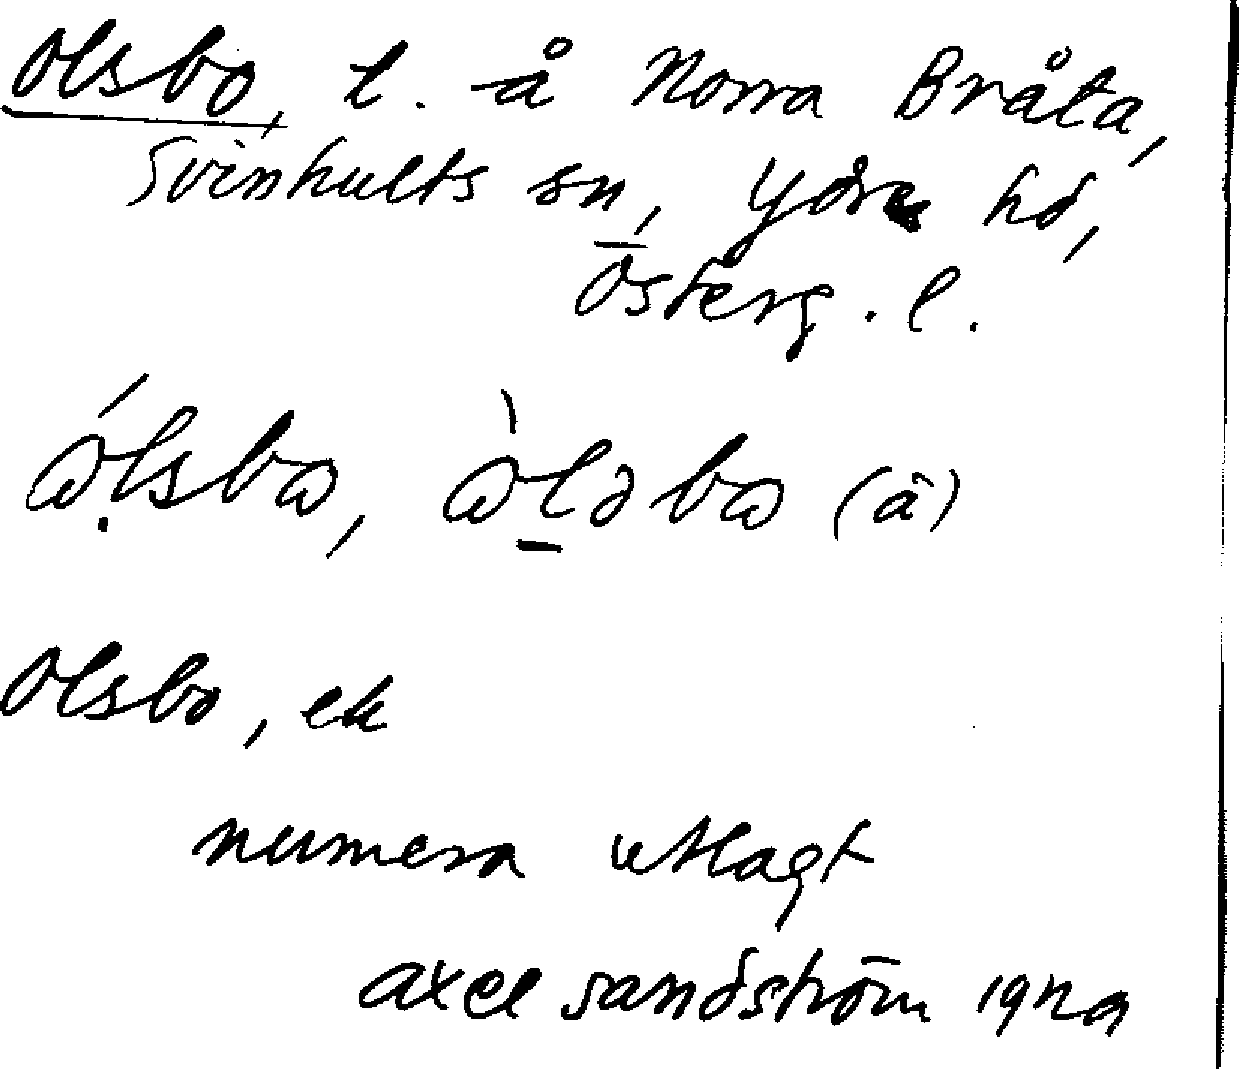 Olsbo, l. å Norra Bråta,
Svinhults sn, Ydre hd,
Österg. l.
ɷ́lsbɷ, ɷ̀lǝbɷ (å)
Olsbo, ek
numera utlagt
Axel Sandström